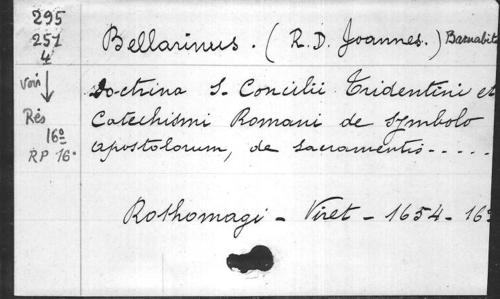 295
251
4
voir
Rés
16º
RP 16º
Bellarinus. (R. D. Joannes.) Barnabit
Doctrina S. Concilii Tridentini et
Catechismi Romani de symbolo
apostolorum, de sacramentis - - - - .
Rothomagi - Viret - 1654 - 16º